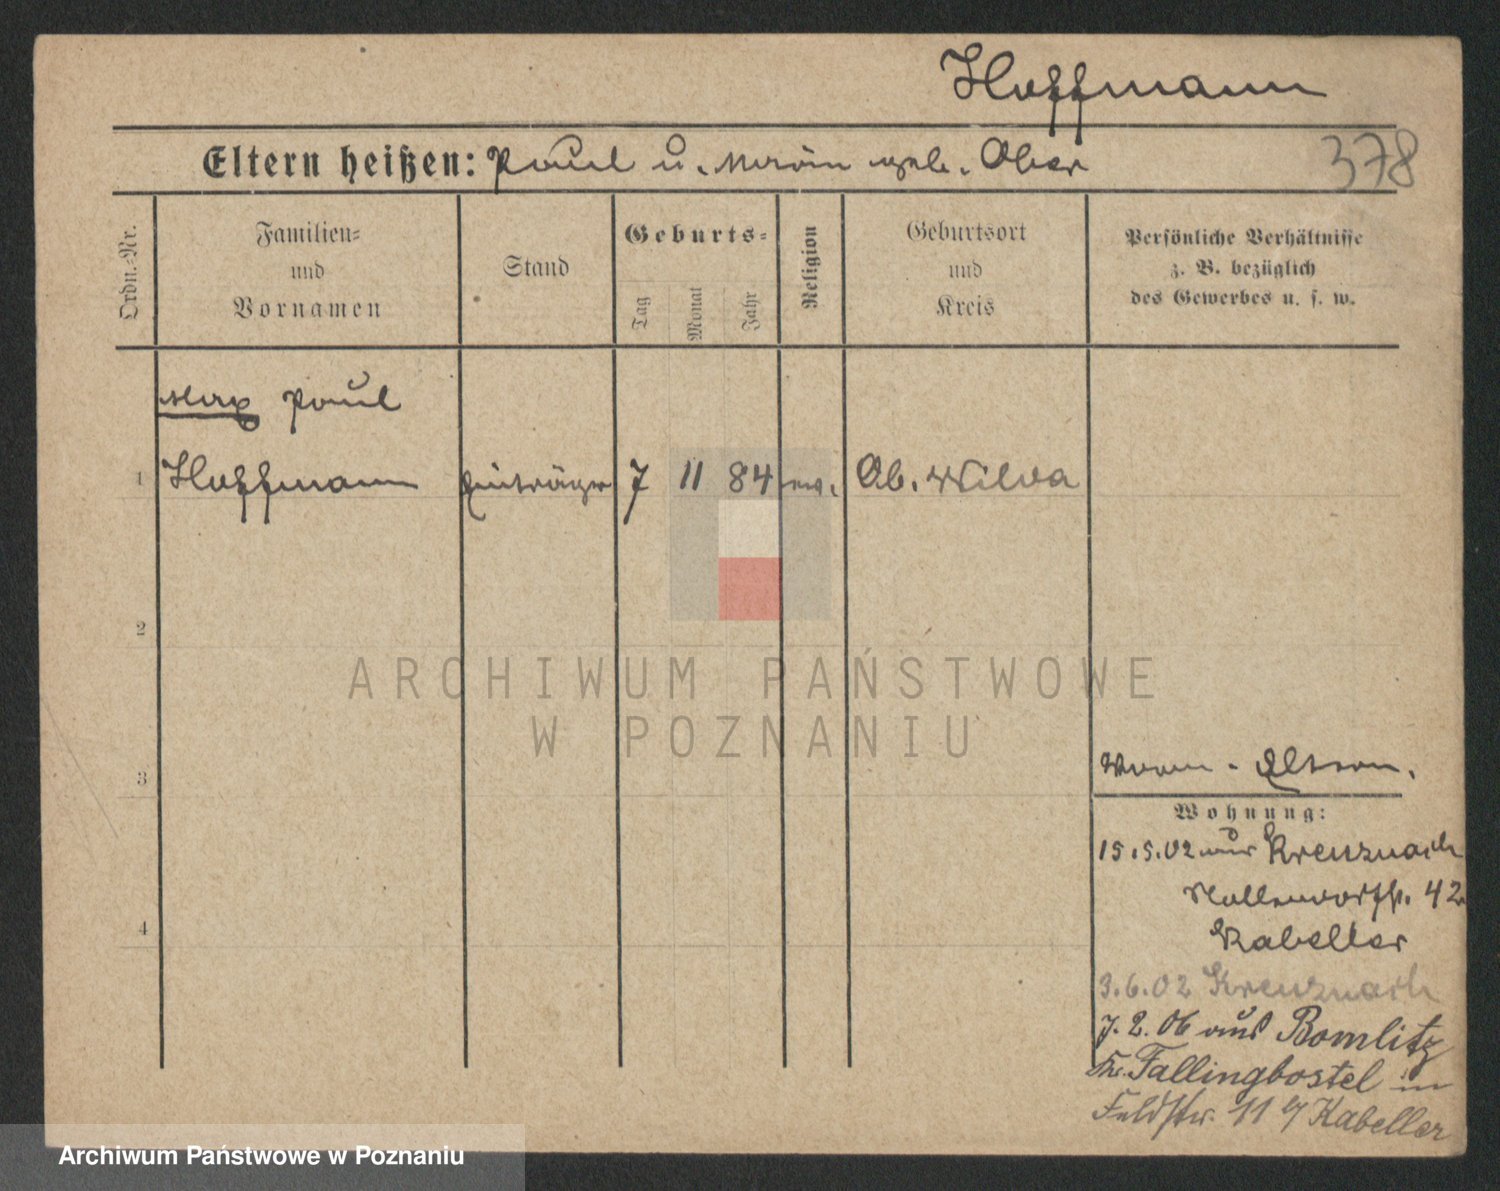 Hoffmann
378
Eltern heißen: Paul u. Maria geb. Ober
Ordn.-Nr.
Familien-
und
Vornamen
Stand
Geburts-
Tag
Monat
Jahr
Religion
Geburtsort
und
Kreis
Persönliche Verhältnisse
z. B. bezüglich
des Gewerbes u. s. w.
Max Paul
1 Hoffmann 7 11 84 ev. Ob. Wilda
2
ARCHIWUM PAŃSTWOWE
W POZNANIU
3
Wohnung:
15.5.02 aus Kreuznach
42
Kabeller
4
3.6.02 Kreuznach
7.2.06 aus Bomlitz
Kr. Fallingbostel in
Feldstr. 11 b/ Kabeller
Archiwum Państwowe w Poznaniu